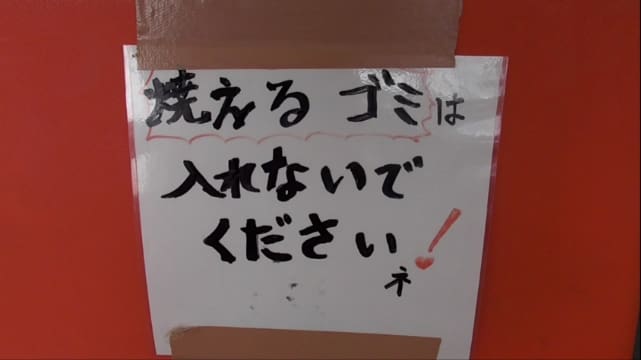 焼えるゴミは
入れないで
くださいネ！